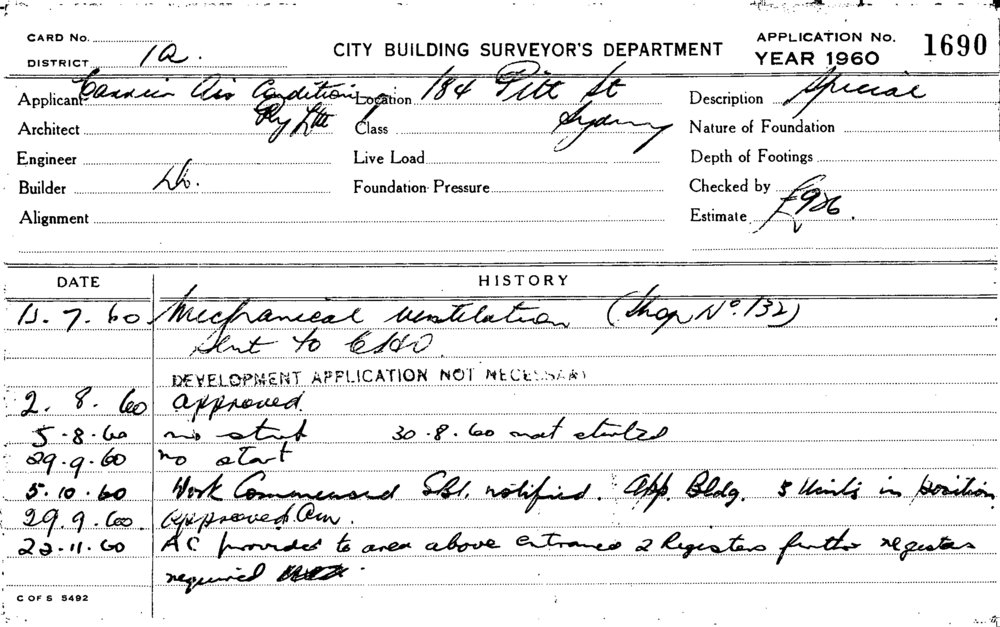 CARD No.
DISTRICT 1a.
CITY BUILDING SURVEYOR'S DEPARTMENT
APPLICATION No. 1690
YEAR 1960
Applicant Carrier Air Conditioning Pty Ltd
Location 184 Pitt St Sydney
Description Special
Architect
Class
Nature of Foundation
Engineer
Live Load
Depth of Footings
Builder
Foundation Pressure
Checked by
Alignment
Estimate £926.
DATE HISTORY
7. 60 Mechanical ventilation (Shop No. 132)
Sent to CHO.
DEVELOPMENT APPLICATION NOT NECESSARY
2. 8. 60 approved
5-8-60 no start 30.8.60 not started
29.9.60 no start
5.10.60 Work Commenced notified. App. Bldg. 5 Units in position
29.9.60. approved
22.11.60 AC provided to area above entrance 2 Registers further registers
required
C OF S 5492